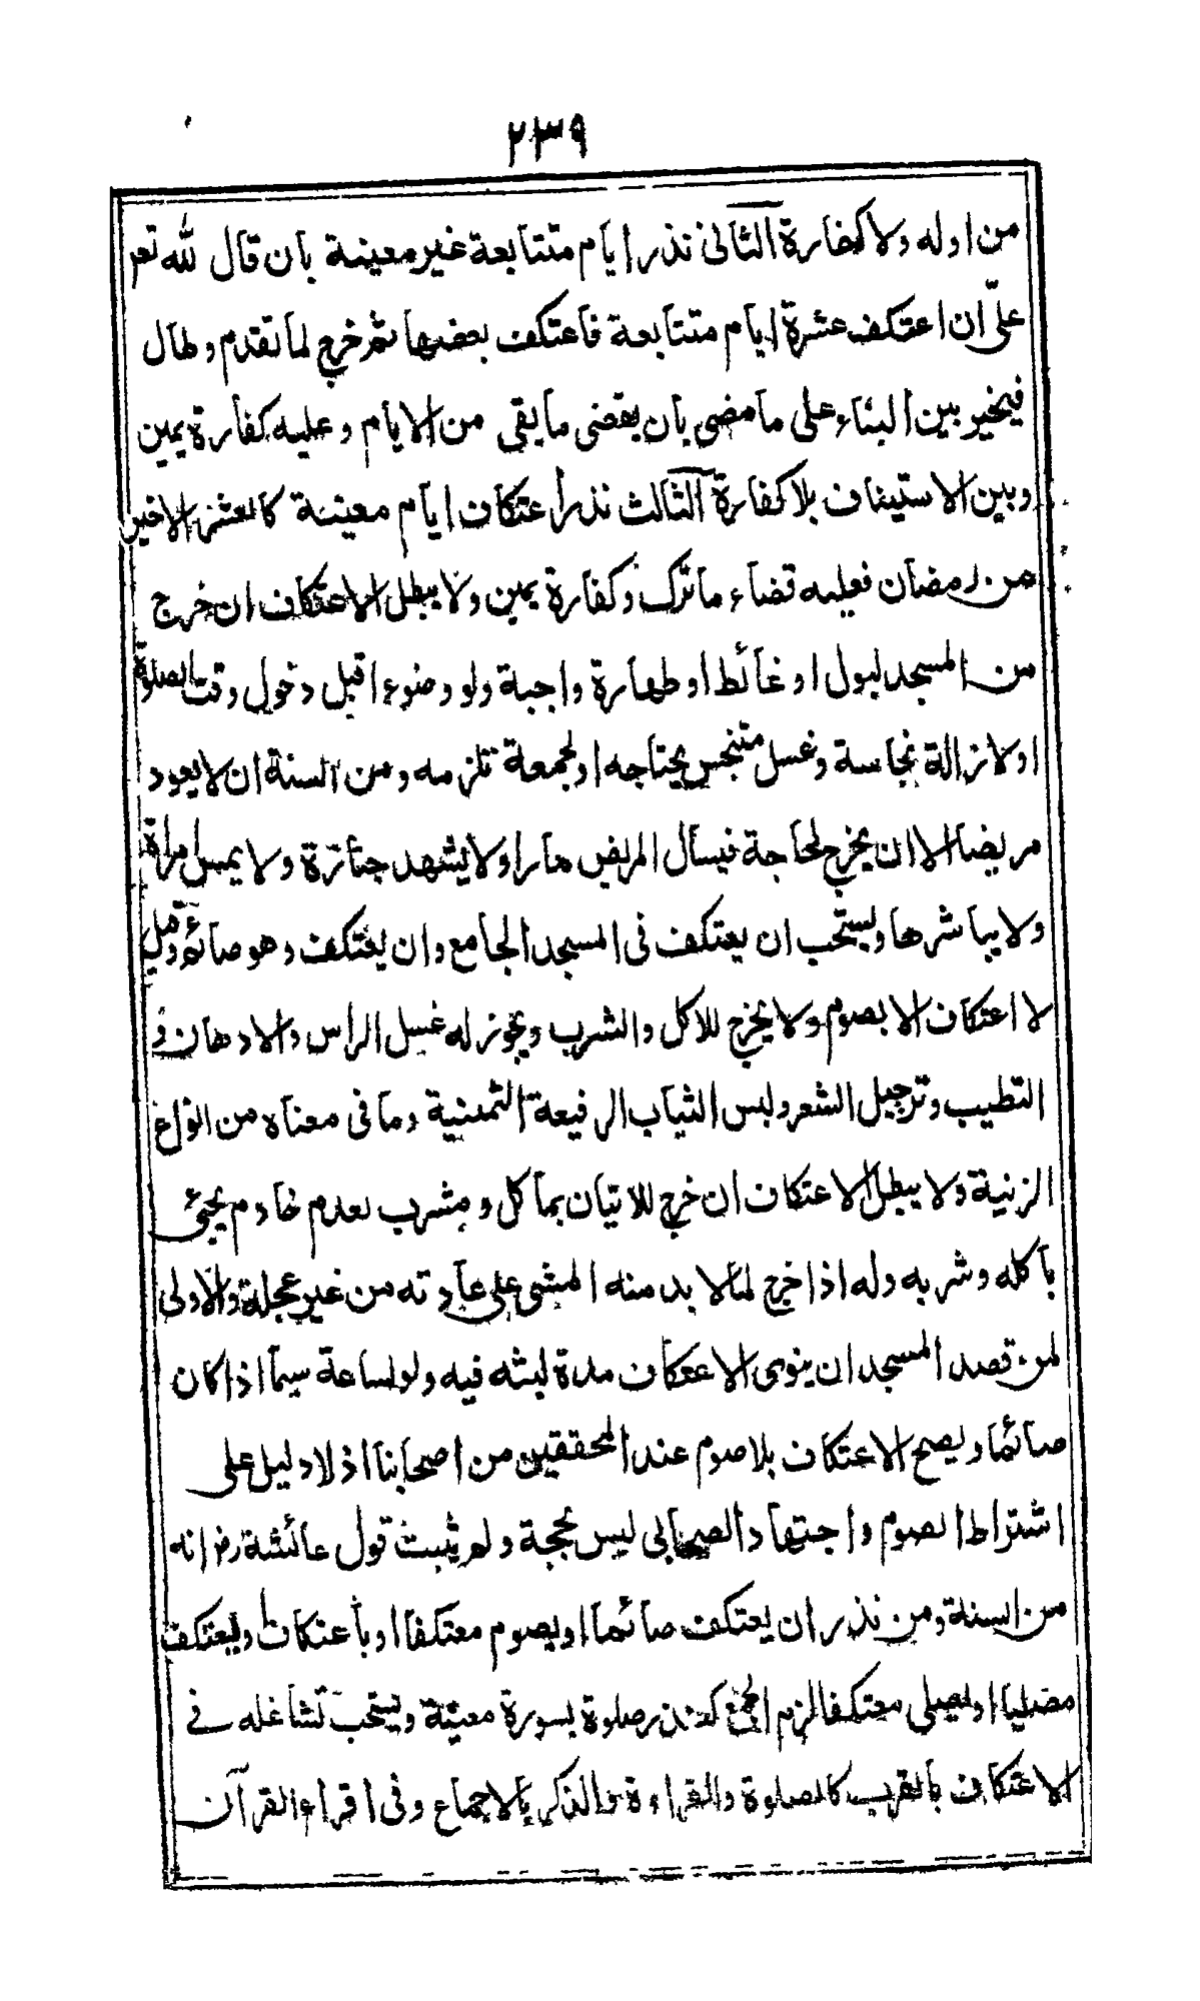 ٢٣٩
من اوله ولا كفارة الثانى نذر ايام متتابعة غير معينة بان قال لله تعم
علىّ ان اعتكف عشرة ايام متتابعة فاعتكف بعضها ثم خرج لما تقدم وطال
فيخير بين البناء على ما مضى بان يقضى ما بقى من الايام وعليه كفارة يمين
وبين الاستيناف بلا كفارة الثالث نذر اعتكاف ايام معينة كالعشر الاخير
من رمضان فعليه قضاء ما ترك وكفارة يمين ولا يبطل الاعتكاف ان خرج
من المسجد لبول او غائط او طهارة واجبة ولو وضوءا قبل دخول وقت الصلوة
او لازالة نجاسة وغسل متنجس يحتاجه او لجمعة تلزمه ومن السنة ان لا يعود
مريضا الا ان يخرج لحاجة فيسأل المريض مارا ولا يشهد جنازة ولا يمس امرأة
ولا يباشرها ويستحب ان يعتكف فى المسجد الجامع وان يعتكف وهو صائم وقيل
لا اعتكاف الا بصوم ولا يخرج للاكل والشرب ويجوز له غسل الراس والادهان و
التطيب وترجيل الشعر ولبس الثياب الرفيعة الثمينة وما فى معناه من انواع
الزينة ولا يبطل الاعتكاف ان خرج للاتيان بمأكل ومشرب لعدم خادم يجيئ
باكله وشربه وله اذا خرج لما لا بد منه المشى على عادته من غير عجلة والاولى
لمن قصد المسجد ان ينوى الاعتكاف مدة لبثه فيه ولو ساعة سيما اذا كان
صائما ويصح الاعتكاف بلا صوم عند المحققين من اصحابنا اذ لا دليل على
اشتراط الصوم واجتهاد الصحابى ليس بحجة ولم يثبت قول عائشة رض انه
من السنة ومن نذر ان يعتكف صائما او يصوم معتكفا او باعتكاف وليعتكف
مصليا او يصلى معتكفا لزم الجمع كنذر صلوة بسورة معينة ويستحب تشاغله فى
الاعتكاف بالقرب كالصلوة والقراءة والذكر بالاجماع وفى اقراء القرآن